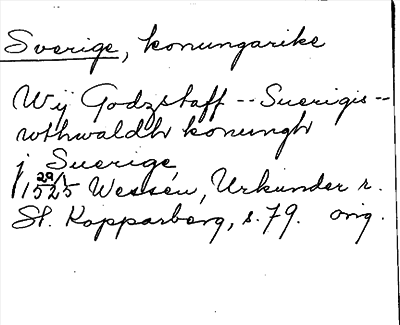 Sverige, konungarike
Wij Godzstaff -- Suerigis --
wthwaldh konungh
j Suerige
29/1 1525 Wessén, Urkunder r.
St. Kopparberg, s. 79. orig.